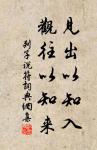 見出以知入
觀往以知来
列子说符詞典網集